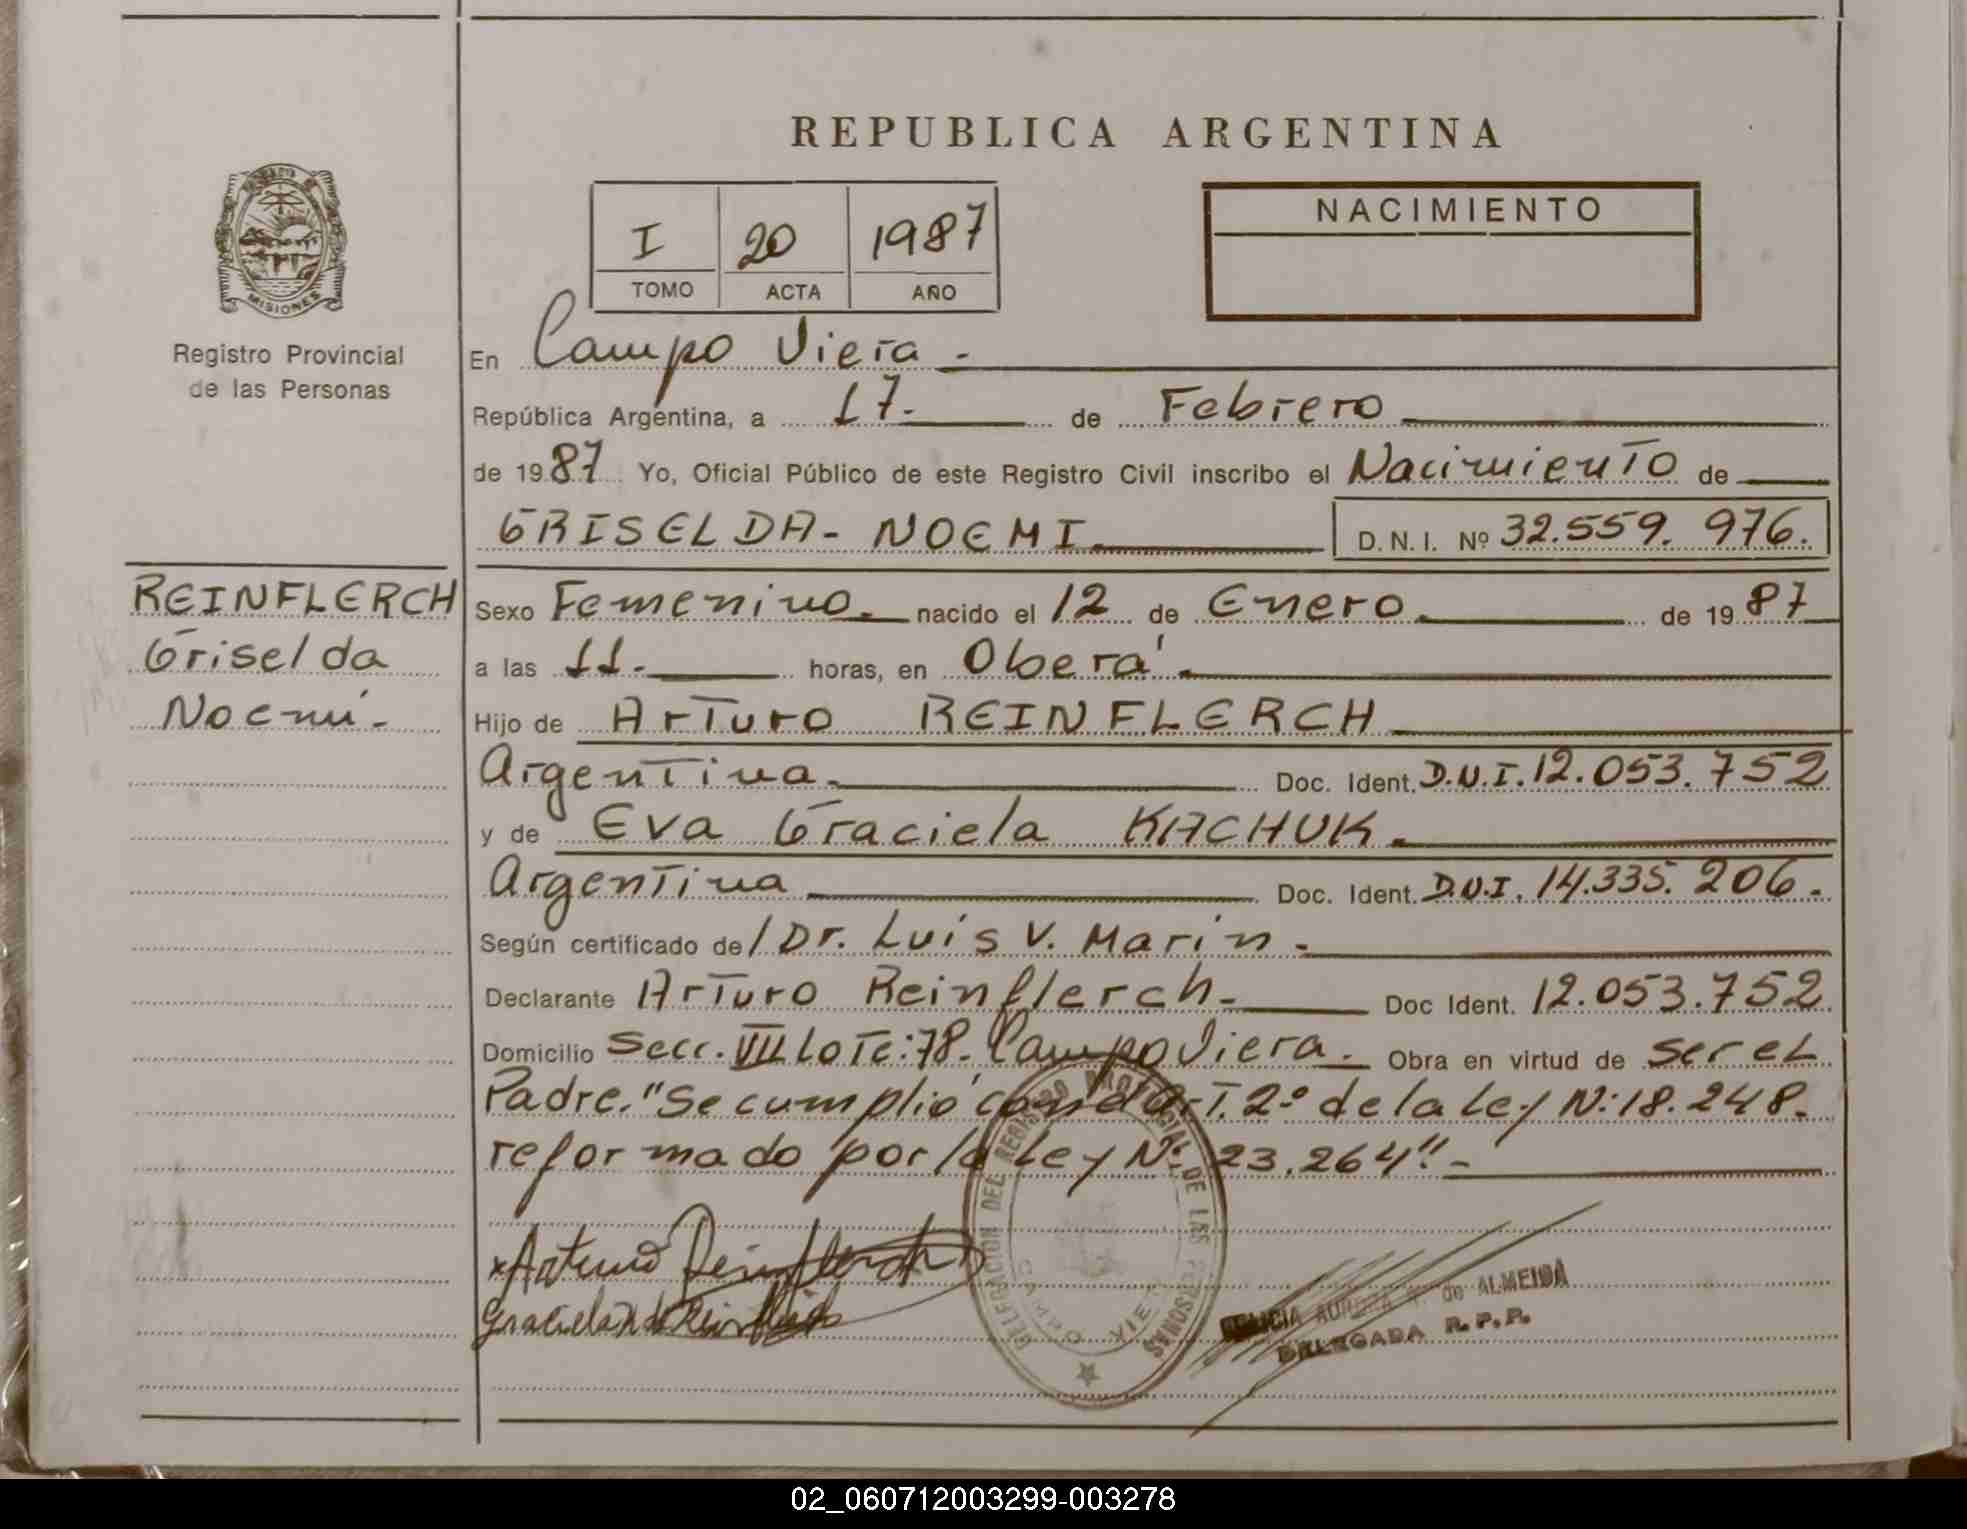 REPUBLICA ARGENTINA
MISIONES
Registro Provincial
de las Personas
I 20 1987
TOMO ACTA AÑO
NACIMIENTO
En Campo Viera -
República Argentina, a 17- de Febrero
de 1987 Yo, Oficial Público de este Registro Civil inscribo el Nacimiento de
GRISELDA- NOEMI D. N. I. Nº 32.559.976.
REINFLERCH
Griselda
Noemí-
Sexo Femenino nacido el 12 de Enero de 1987
a las 11- horas, en Oberá
Hijo de Arturo REINFLERCH
Argentina Doc. Ident. D.N.I. 12.053.752
y de Eva Graciela KACHUK
Argentina Doc. Ident. D.N.I. 14.335.206.
Según certificado de/ Dr. Luis V. Marin -
Declarante Arturo Reinflerch- Doc Ident. 12.053.752
Domicilio Secc. VII Lote: 78. Campo Viera. Obra en virtud de ser el
Padre. "Se cumplió con el art. 2º de la Ley N: 18.248.
reformado por la Ley Nº 23.264"-
Arturo Reinflerch
DELEGACION DEL REGISTRO PROVINCIAL DE LAS PERSONAS
CAMPO VIERA
AURORA de ALMEIDA
DELEGADA R.P.P.
02_060712003299-003278